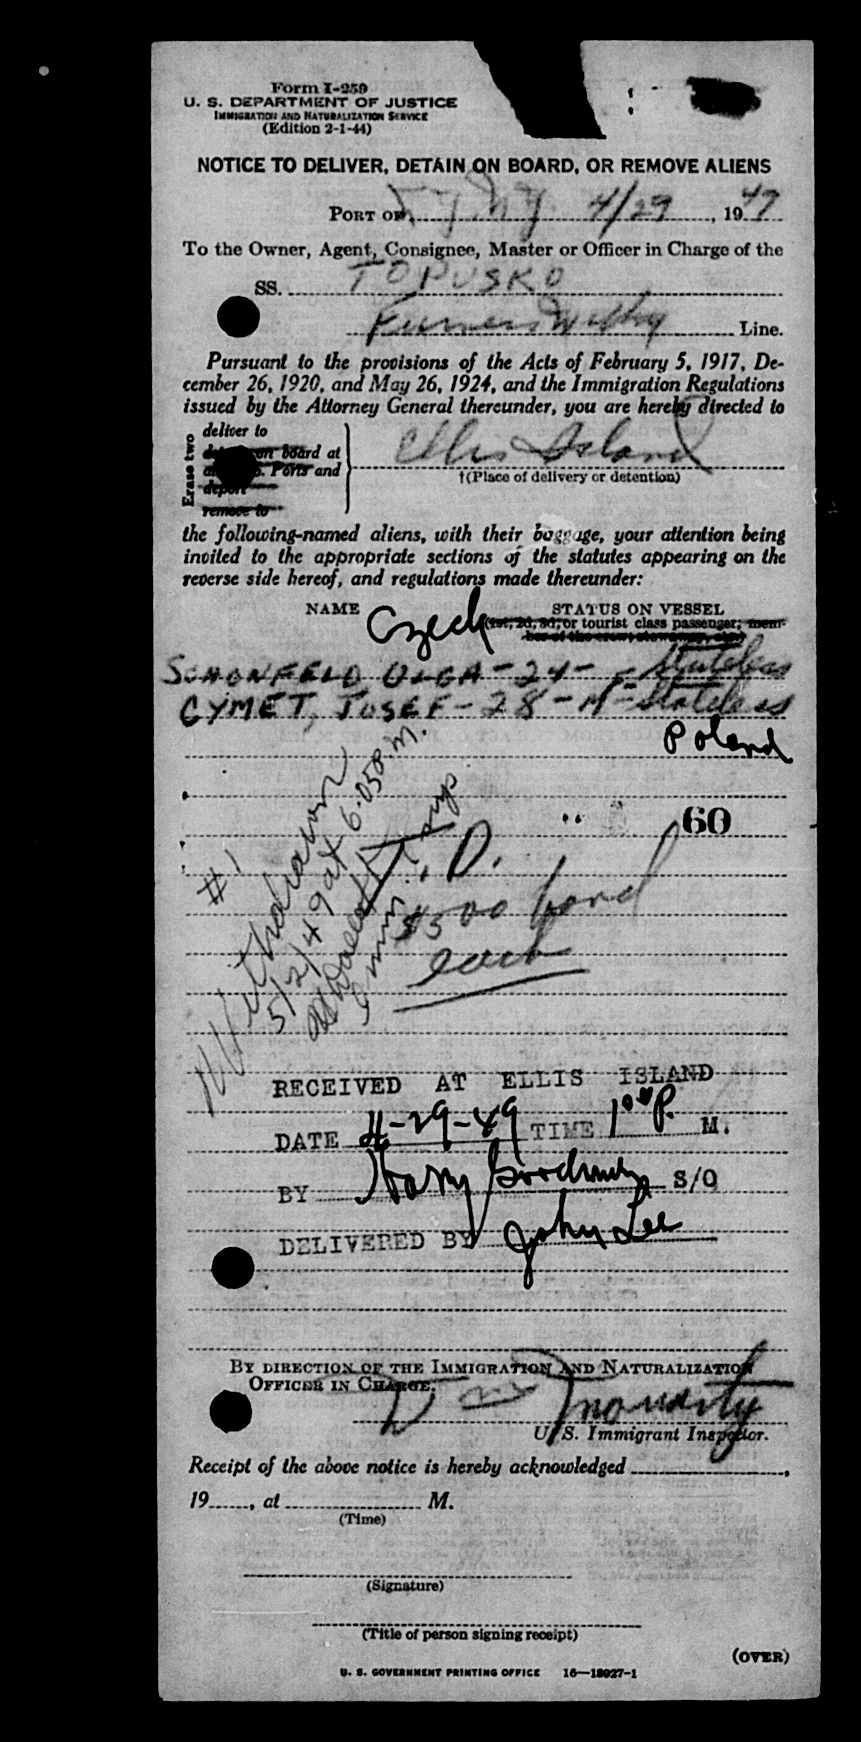 Form I-259
U. S. DEPARTMENT OF JUSTICE
IMMIGRATION AND NATURALIZATION SERVICE
(Edition 2-1-44)
NOTICE TO DELIVER, DETAIN ON BOARD, OR REMOVE ALIENS
PORT OF N.Y. N.Y. 4/29, 1949
To the Owner, Agent, Consignee, Master or Officer in Charge of the
SS. TOPUSKO
Line.
Pursuant to the provisions of the Acts of February 5, 1917, De-
cember 26, 1920, and May 26, 1924, and the Immigration Regulations
issued by the Attorney General thereunder, you are hereby directed to
Erase two
deliver to
on board at
Ports and
deport
remove to
Ellis Island
†(Place of delivery or detention)
the following-named aliens, with their baggage, your attention being
invited to the appropriate sections of the statutes appearing on the
reverse side hereof, and regulations made thereunder:
NAME STATUS ON VESSEL
(1st, 2d, 3d, or tourist class passenger; mem-
ber of the crew, stowaway, etc.)
Czech
SCHONFELD OLGA - 24 - - Stateless
CYMET, JOSEF - 28 - M - Stateless
Poland
60
#1
Withdrawn
5/2/49 at 6:05 P.M.
T. D.
$500 bond
each
RECEIVED AT ELLIS ISLAND
DATE 4-29-49 TIME 1 00 P. M.
BY Harry S/O
DELIVERED BY John Lee
BY DIRECTION OF THE IMMIGRATION AND NATURALIZATION
OFFICER IN CHARGE.
U. S. Immigrant Inspector.
Receipt of the above notice is hereby acknowledged ,
19 , at M.
(Time)
(Signature)
(Title of person signing receipt)
(OVER)
U. S. GOVERNMENT PRINTING OFFICE 16—18927-1